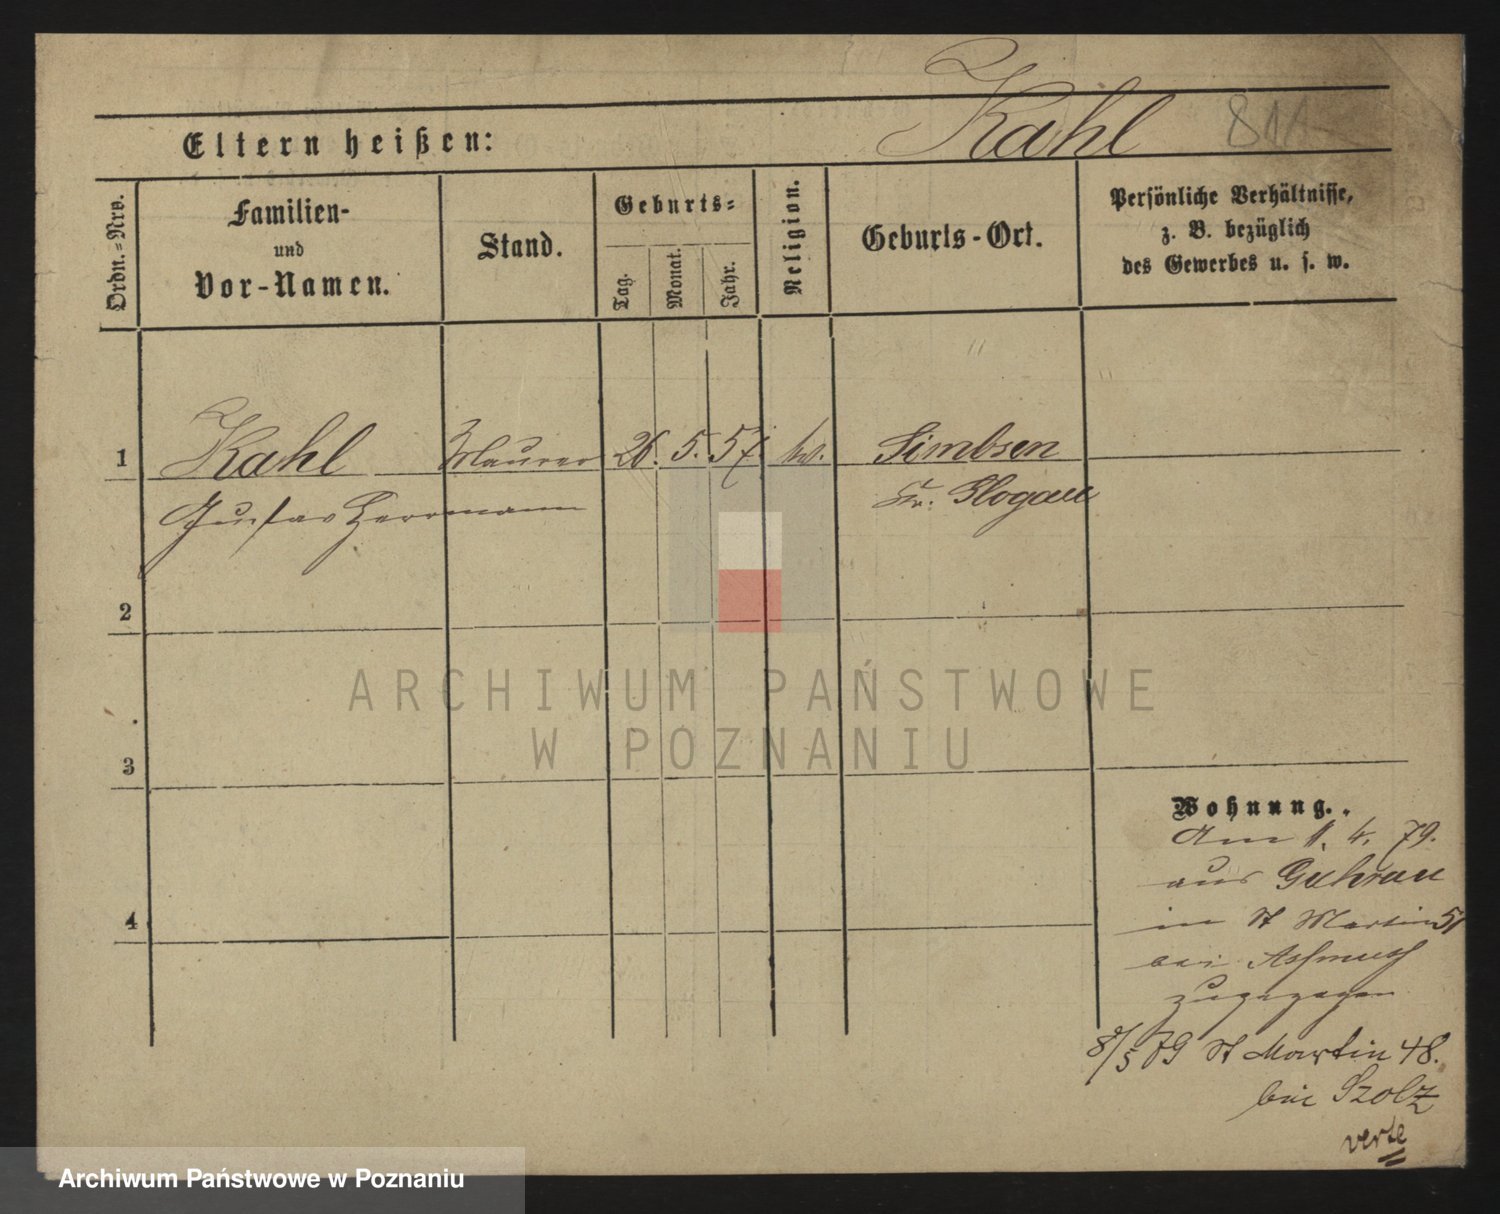 Kahl 811
Eltern heißen:
Ordn.=Nro.
Familien-
und
Vor-Namen.
Stand.
Geburts=
Tag.
Monat.
Jahr.
Religion.
Geburts-Ort.
Persönliche Verhältnisse,
z. B. bezüglich
des Gewerbes u. s. w.
1 Kahl Maurer 26. 5. 57. ev. Simbsen
Gustav Herrmann Kr. Glogau
2
3
4
ARCHIWUM PAŃSTWOWE
W POZNANIU
Wohnung.
Am 1. 4. 79.
aus Guhrau
in St Martin 51
bei
zugezogen
8/5 79 St Martin 48.
bei Szolz
verte
Archiwum Państwowe w Poznaniu